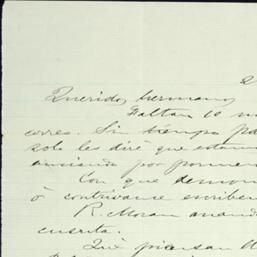 2
Querido hermano,
Faltan 10 m
correo. Sin tiempo pa
solo les diré que estam
ansiando por pormen
Con que demon
ó contrivance escriben
R. Moran anand
cuesta.
Qué piensan U